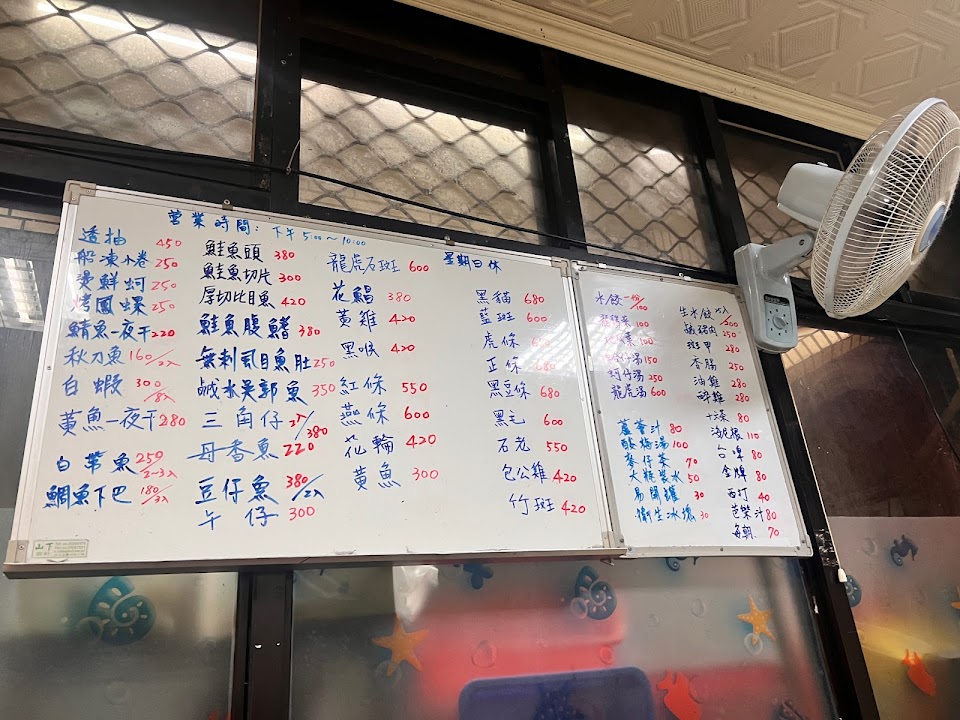 營業時間: 下午 5:00~10:00
星期日休
透抽 450
船凍小卷 250
燙鮮蚵 250
烤鳳螺 250
鯖魚一夜干 220
秋刀魚 160/2入
白蝦 300/8入
黃魚一夜干 280
白帶魚 250/2-3入
鯛魚下巴 180/3入
鮭魚頭 380
鮭魚切片 300
厚切比目魚 420
鮭魚腹鰭 380
無刺虱目魚肚 250
鹹水吳郭魚 350
三角仔 380
丹香魚 220
豆仔魚 380/2入
午仔 300
龍虎石斑 600
花鯧 380
黃雞 420
黑喉 420
紅條 550
燕條 600
花輪 420
黃魚 300
黑貓 680
藍斑 600
虎條
正條 680
黑豆條 680
黑毛 600
石老 550
包公雞 420
竹斑 420
水餃 一份/100
100
100
150
蚵仔湯 250
龍虎湯 600
蘆薈汁 80
酸梅湯 100
麥仔茶 70
大瓶裝水 50
易開罐 30
衛生冰塊 30
生水餃 300
鹹豬肉 250
斑甲 280
香腸 250
油雞 280
醉雞 280
十六茶 80
海尼根 110
台啤 80
金牌 80
西打 40
芭樂汁 80
每朝 70
山下